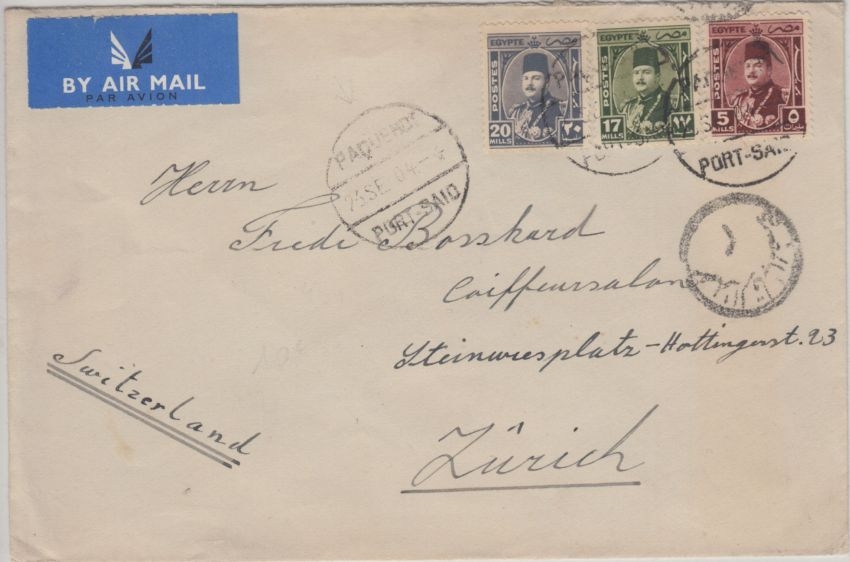 BY AIR MAIL
PAR AVION
EGYPTE مصر
POSTES
20 ٢٠
MILLS
EGYPTE مصر
POSTES
17 ١٧
MILLS
EGYPTE مصر
POSTES
5 ٥
MILLS
PORT-SAID
PAQUEBOT
PORT-SAID
Herrn
Fredi Bosshard
Coiffeursalon
Steinwiesplatz-Hottingerst. 23
Zürich
Switzerland